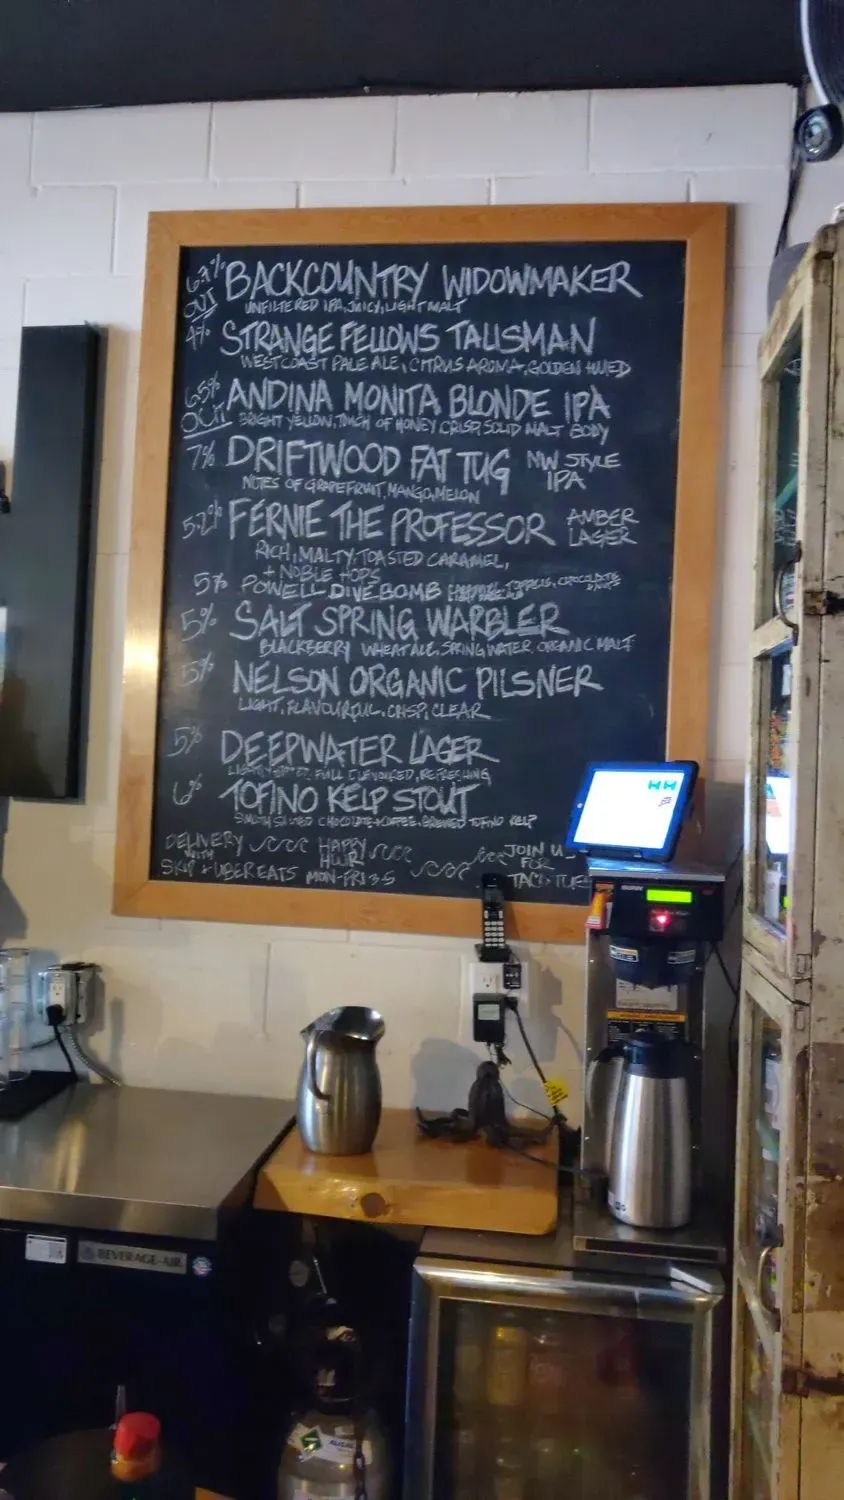 6.7% BACKCOUNTRY WIDOWMAKER
OUT UNFILTERED IPA, JUICY, LIGHT MALT
4% STRANGE FELLOWS TALISMAN
WEST COAST PALE ALE, CITRUS AROMA, GOLDEN HUED
6.5% ANDINA MONITA BLONDE IPA
OUT BRIGHT YELLOW, TOUCH OF HONEY CRISP, SOLID MALT BODY
7% DRIFTWOOD FAT TUG NW STYLE IPA
NOTES OF GRAPEFRUIT, MANGO, MELON
5.2% FERNIE THE PROFESSOR AMBER LAGER
RICH, MALTY, TOASTED CARAMEL,
+ NOBLE HOPS
5% POWELL DIVE BOMB CHOCOLATE
5% SALT SPRING WARBLER
BLACKBERRY WHEAT ALE, SPRING WATER ORGANIC MALT
5% NELSON ORGANIC PILSNER
LIGHT, FLAVOURFUL, CRISP, CLEAR
5% DEEPWATER LAGER
FULL FLAVOURED, REFRESHING
6% TOFINO KELP STOUT
SMOOTH SALTED CHOCOLATE + COFFEE, BREWED TOFINO KELP
DELIVERY WITH SKIP + UBER EATS
HAPPY HOUR MON-FRI 3-5
JOIN US FOR TACO TUES
BUNN
BEVERAGE-AIR